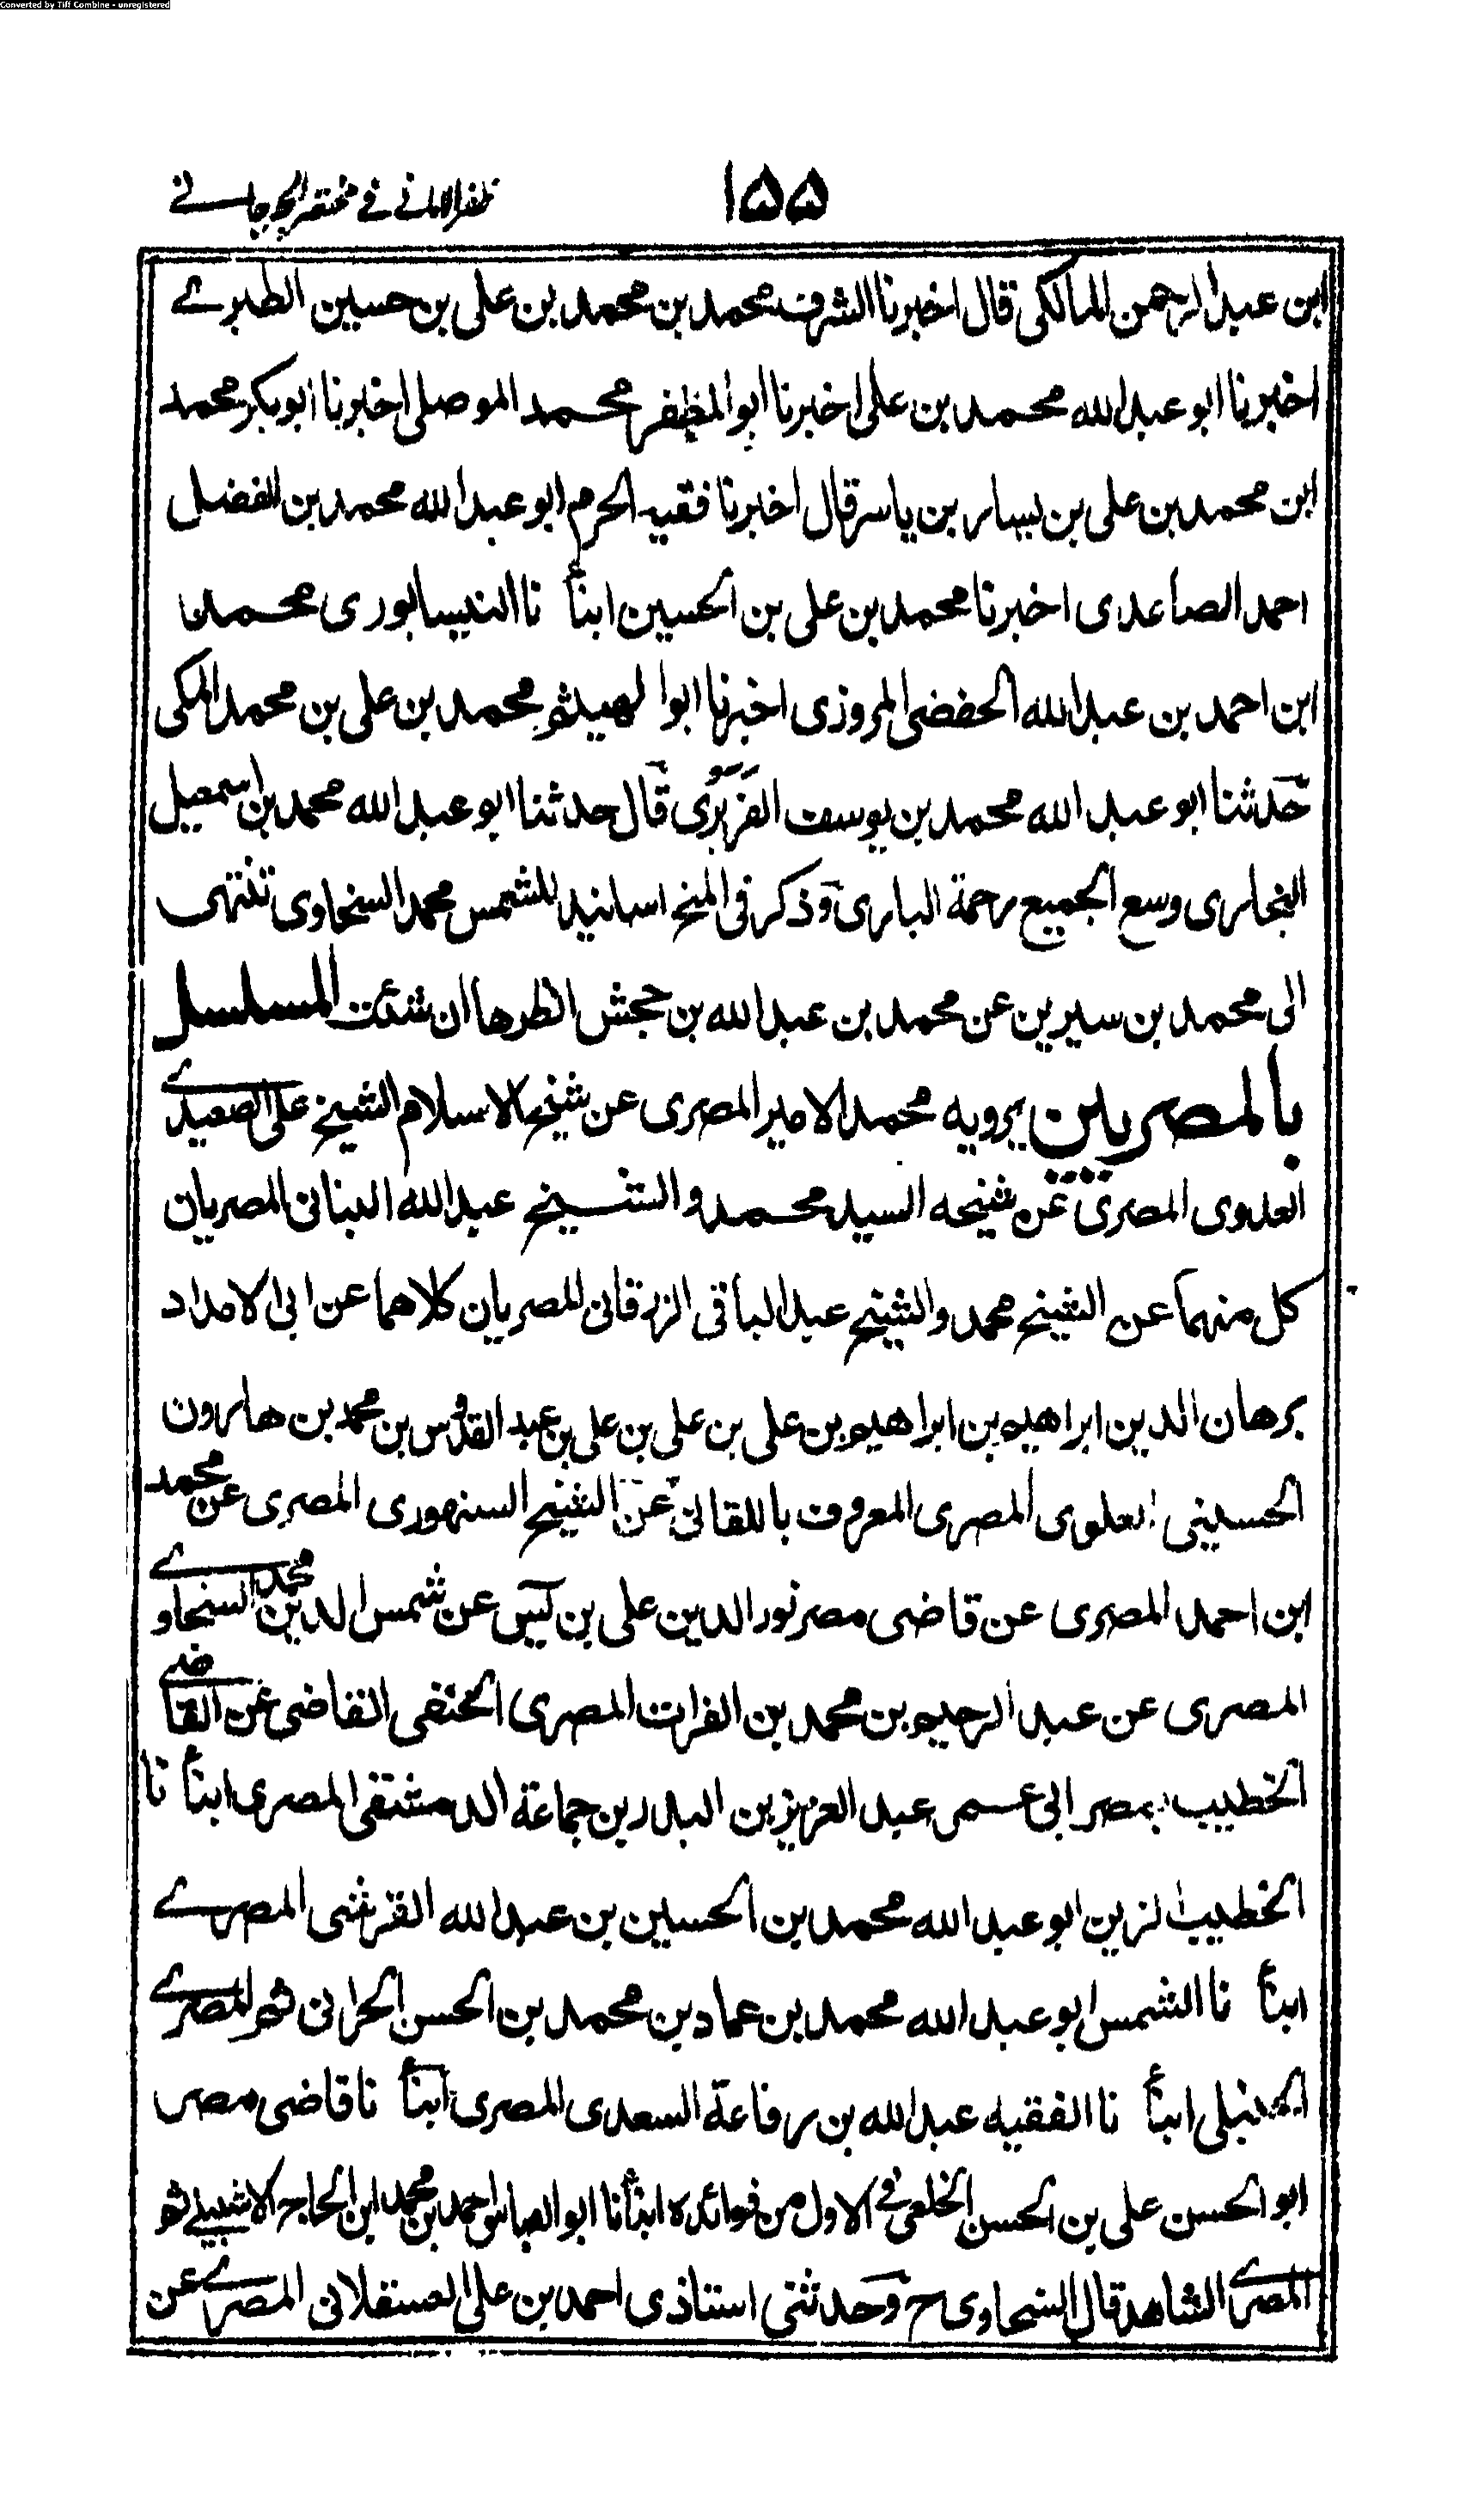 Converted by Tiff Combine - unregistered
١٥٥
ظفر الامانی فی مختصر الجرجانے
ابن عبد الرحمن المالكی قال اخبرنا الشرف محمد بن محمد بن علی بن حسین الطبرے
اخبرنا ابو عبد الله محمد بن علی اخبرنا ابو المظفر محمد الموصلی اخبرنا ابو بكر محمد
ابن محمد بن علی بن یسار بن یاسر قال اخبرنا فقیه الحرم ابو عبد الله محمد بن الفضل
احمد الصاعدی اخبرنا محمد بن علی بن الحسین ابنأ نا النیسابوری محمد
ابن احمد بن عبد الله الحفضی المروزی اخبرنا ابوا لهیثم محمد بن علی بن محمد المكی
حَدثنا ابو عبد الله محمد بن یوسف الفَرَبْرُی قال حدثنا ابو عبد الله محمد بن اسمعیل
البخاری وسع الجمیع رحمة الباری وذكر فی المنح اسانید للشمس محمد السخاوی تنتهی
الی محمد بن سیرین عن محمد بن عبد الله بن جحش انظرها ان شئت المسلسل
بالمصریین یرویه محمد الامیر المصری عن شیخ الاسلام الشیخ علی الصعیدے
العدوی المصری عن شیخه السید محمد والشیخ عبد الله البنانی المصریان
كل منهما عن الشیخ محمد والشیخ عبد الباقی الزرقانی المصریان كلاهما عن ابی الامداد
برهان الدین ابراهیم بن ابراهیم بن علی بن علی بن علی بن عبد القدوس بن محمد بن هارون
الحسینی العلوی المصری المعروف باللقانی عن الشیخ السنهوری المصری عن محمد
ابن احمد المصری عن قاضی مصر نور الدین علی بن یٰسٓ عن شمس الدین محمد السخاوے
المصری عن عبد الرحیم بن محمد بن الفرات المصری الحنفی القاضی عن القاضے
الخطیب بمصر ابی عمر عبد العزیز بن البدر بن جماعة الدمشقی المصری ابنأ نا
الخطیب الزین ابو عبد الله محمد بن الحسین بن عبد الله القرشی المصرے
ابنأ نا الشمس ابو عبد الله محمد بن عماد بن محمد بن الحسن الحرانی ثم المصرے
الحنبلی ابنأ نا الفقیه عبد الله بن رفاعة السعدی المصری ابنأ نا قاضی مصر
ابو الحسن علی بن الحسن الخلعی فے الاول من فوائده ابنأنا ابو العباس احمد بن محمد ابن الحاج الاشبیلے ثم
المصرے الشاهد قال السخاوی ح وَحدثنی استاذی احمد بن علی العسقلانی المصرے عن